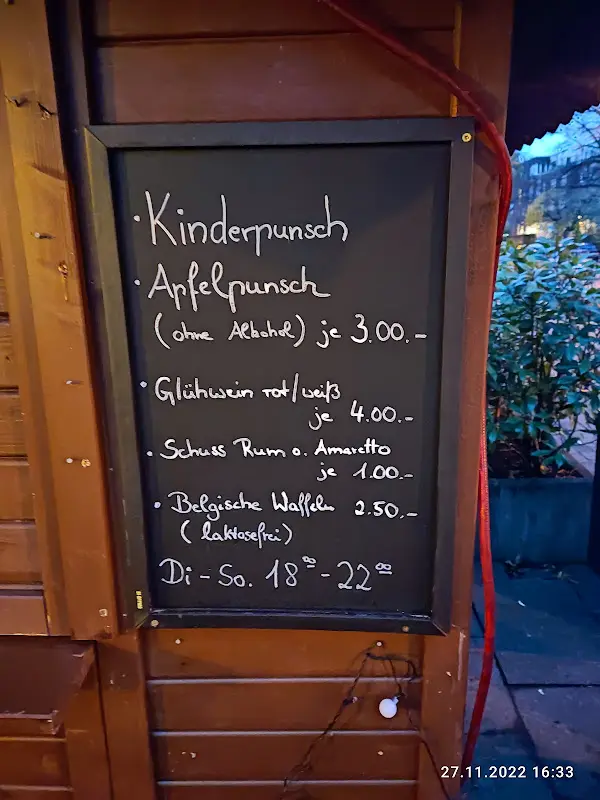 · Kinderpunsch
· Apfelpunsch
(ohne Alkohol) je 3.00.-
· Glühwein rot/weiß
je 4.00.-
· Schuss Rum o. Amaretto
je 1.00.-
· Belgische Waffeln 2.50.-
(laktosefrei)
Di - So. 18⁰⁰ - 22⁰⁰
27.11.2022 16:33